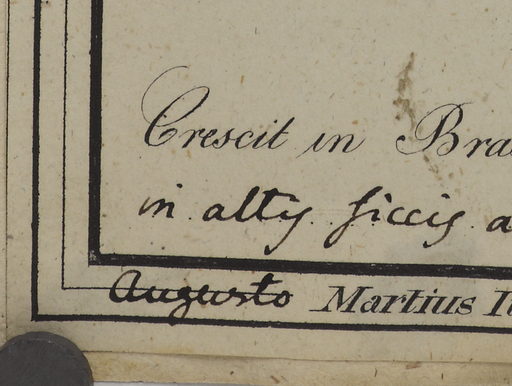 Crescit in Bra
in altis siccis a
Augusto Martius I